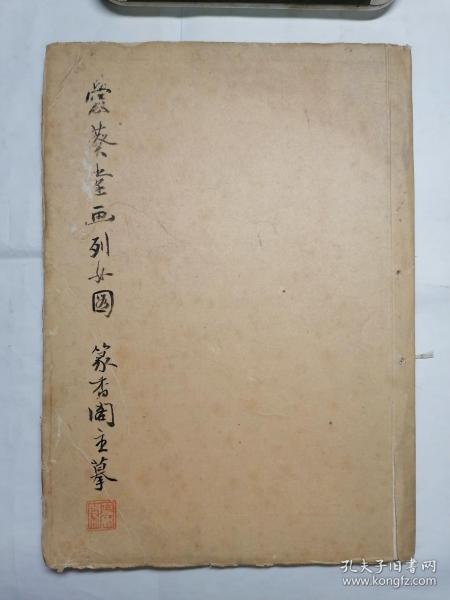 爱葵堂画列女图 篆香阁主摹
孔夫子旧书网
www.kongfz.com